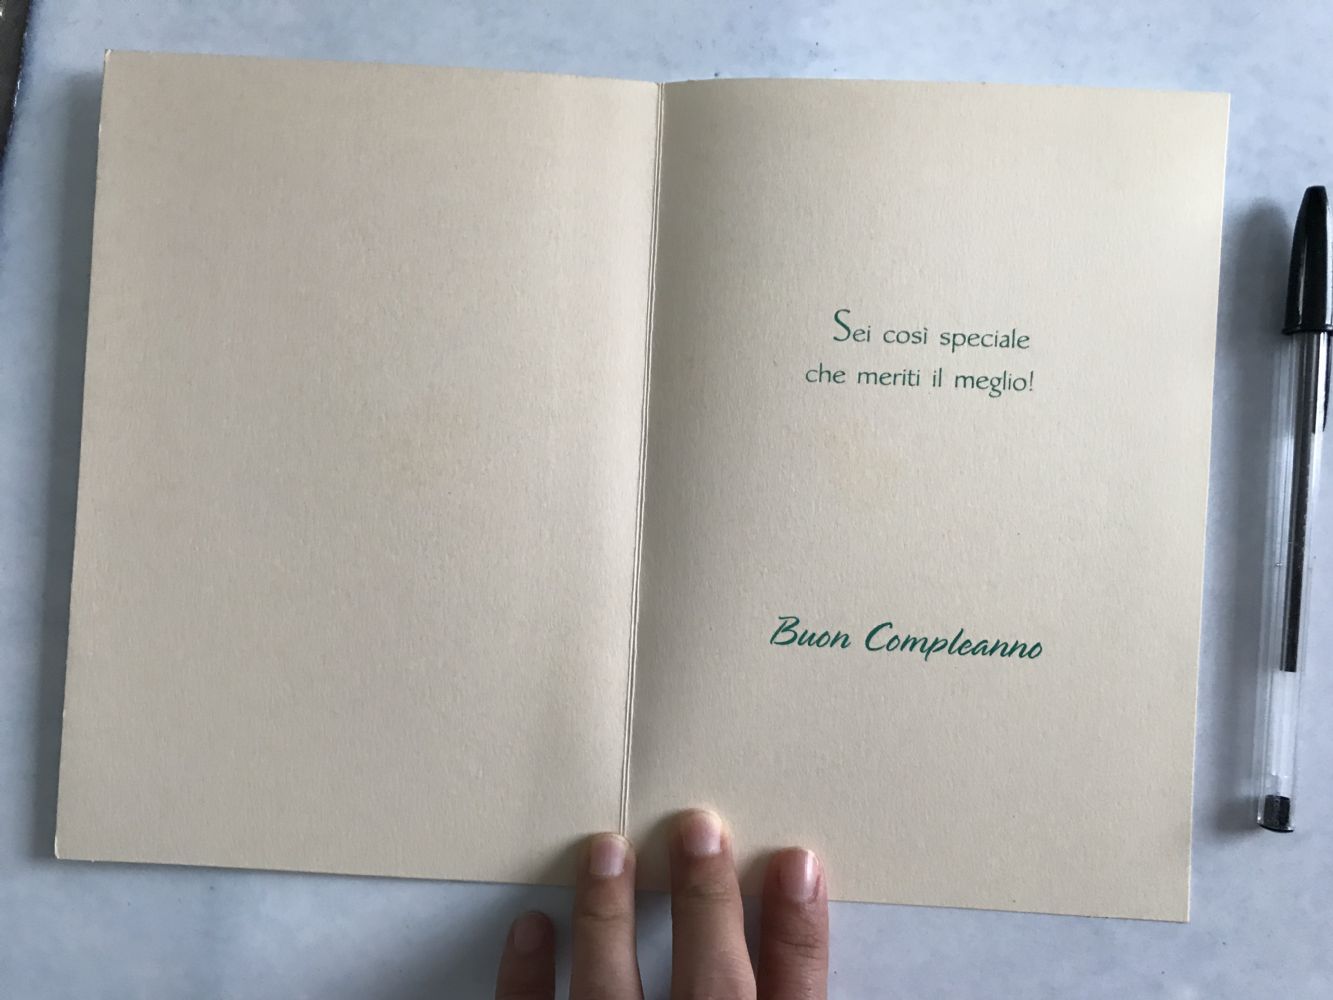 Sei così speciale
che meriti il meglio!
Buon Compleanno